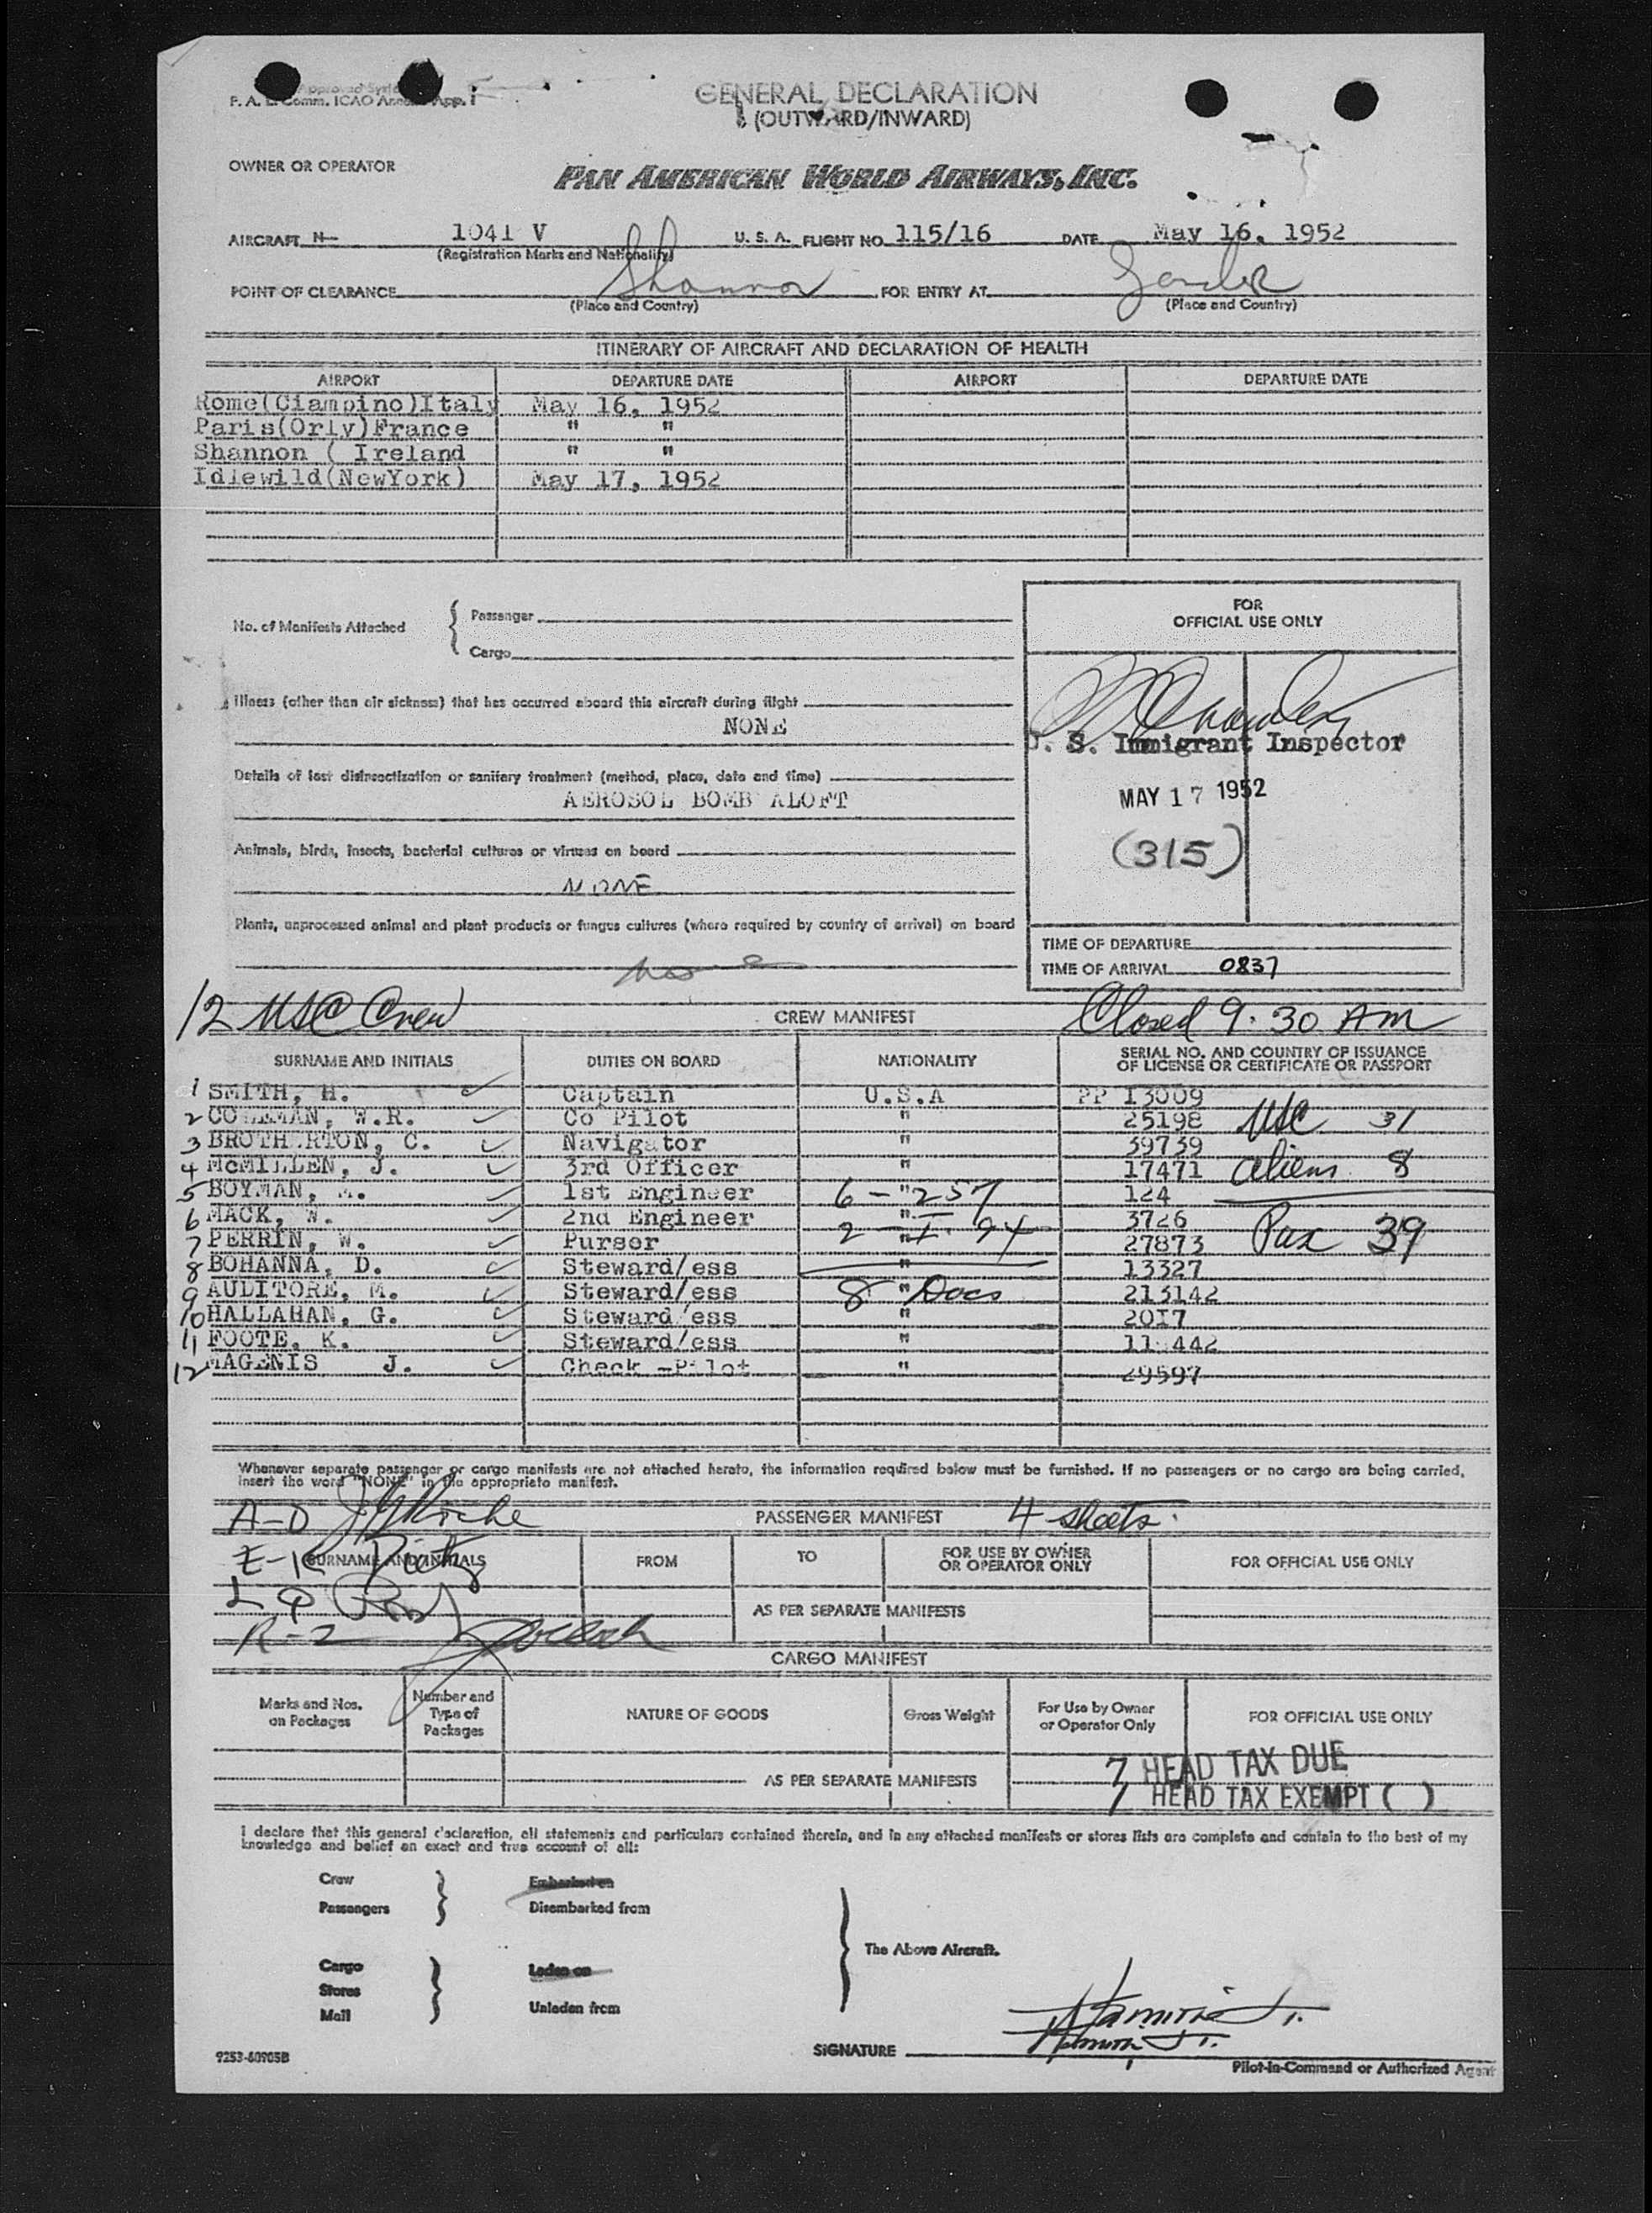 Approved Syst
F. A. L. Comm. ICAO Annex App. 1
GENERAL DECLARATION
(OUTWARD/INWARD)
OWNER OR OPERATOR
PAN AMERICAN WORLD AIRWAYS, INC.
AIRCRAFT N 1041 V U. S. A. FLIGHT NO. 115/16 DATE May 16, 1952
(Registration Marks and Nationality)
POINT OF CLEARANCE Shannon FOR ENTRY AT Gander
(Place and Country) (Place and Country)
ITINERARY OF AIRCRAFT AND DECLARATION OF HEALTH
AIRPORT DEPARTURE DATE AIRPORT DEPARTURE DATE
Rome(Ciampino)Italy May 16, 1952
Paris(Orly)France " "
Shannon ( Ireland " "
Idlewild(NewYork) May 17, 1952
FOR
OFFICIAL USE ONLY
No. of Manifests Attached { Passenger
Cargo
Illness (other than air sickness) that has occurred aboard this aircraft during flight
NONE
U. S. Immigrant Inspector
Details of last disinsectization or sanitary treatment (method, place, date and time)
AEROSOL BOMB ALOFT
MAY 17 1952
(315)
Animals, birds, insects, bacterial cultures or viruses on board
NONE
Plants, unprocessed animal and plant products or fungus cultures (where required by country of arrival) on board
None
TIME OF DEPARTURE
TIME OF ARRIVAL 0837
12 USC Crew CREW MANIFEST Closed 9.30 AM
SURNAME AND INITIALS DUTIES ON BOARD NATIONALITY SERIAL NO. AND COUNTRY OF ISSUANCE
OF LICENSE OR CERTIFICATE OR PASSPORT
1 SMITH, H. Captain U.S.A PP 13009
2 COLEMAN, W.R. Co Pilot " 25198 USC 31
3 BROTHERTON, C. Navigator " 39739
4 McMILLEN, J. 3rd Officer " 17471 aliens 8
5 BOYMAN, 1st Engineer 6 - " 257 124
6 MACK, W. 2nd Engineer " 3726
7 PERRIN, W. Purser 2 - I- 94 " 27873 Pax 39
8 BOHANNA, D. Steward/ess " 13327
9 AULITORE, M. Steward/ess 8 " Docs 213142
10 HALLAHAN, G. Steward/ess " 2017
11 FOOTE, K. Steward/ess " 11 442
12 MAGENIS J. Check -Pilot " 29597
Whenever separate passenger or cargo manifests are not attached hereto, the information required below must be furnished. If no passengers or no cargo are being carried,
insert the word "NONE" in the appropriate manifest.
A-D PASSENGER MANIFEST 4 sheets.
E-K SURNAME AND INITIALS FROM TO FOR USE BY OWNER
OR OPERATOR ONLY FOR OFFICIAL USE ONLY
L P AS PER SEPARATE MANIFESTS
R-Z
CARGO MANIFEST
Marks and Nos.
on Packages Number and
Type of
Packages NATURE OF GOODS Gross Weight For Use by Owner
or Operator Only FOR OFFICIAL USE ONLY
AS PER SEPARATE MANIFESTS
7 HEAD TAX DUE
1 HEAD TAX EXEMPT ( )
I declare that this general declaration, all statements and particulars contained therein, and in any attached manifests or stores lists are complete and contain to the best of my
knowledge and belief an exact and true account of all:
Crew Embarked on
Passengers Disembarked from
The Above Aircraft.
Cargo Laden on
Stores
Mail Unladen from
SIGNATURE
9253-60905B Pilot-in-Command or Authorized Agent